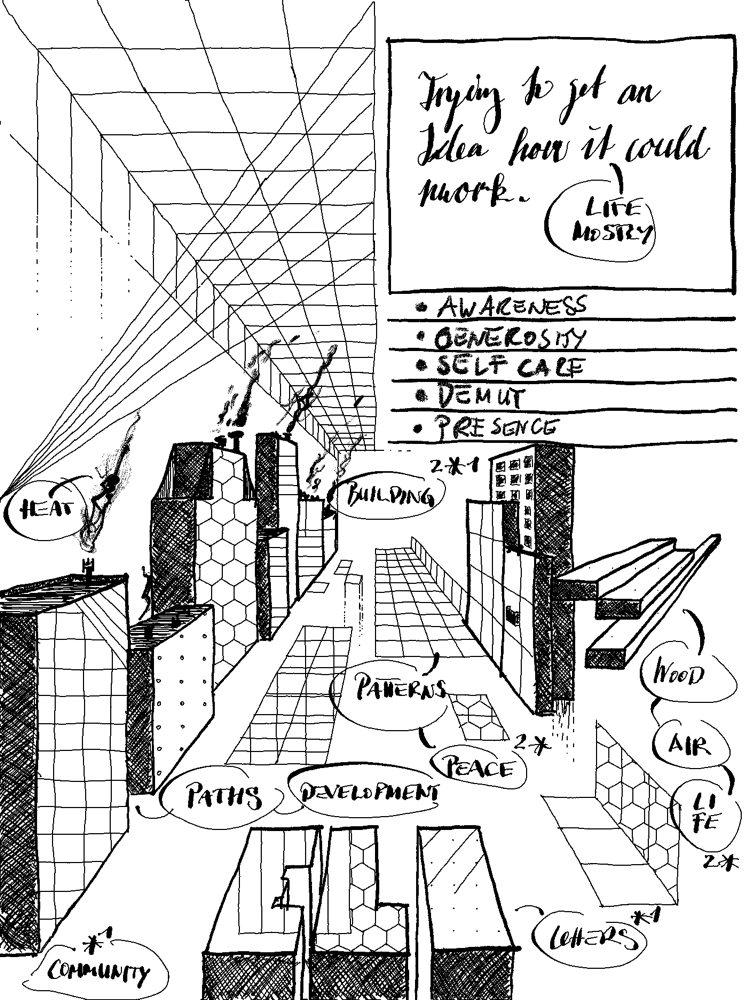 Trying to get an
Idea how it could
work.
LIFE
MOSTLY
• AWARENESS
• GENEROSITY
• SELF CARE
• DEMUT
• PRESENCE
2*1
HEAT
BUILDING
WOOD
PATTERNS
AIR
2*
PEACE
PATHS
DEVELOPMENT
LI
FE
2*
*1
LETTERS
*1
COMMUNITY